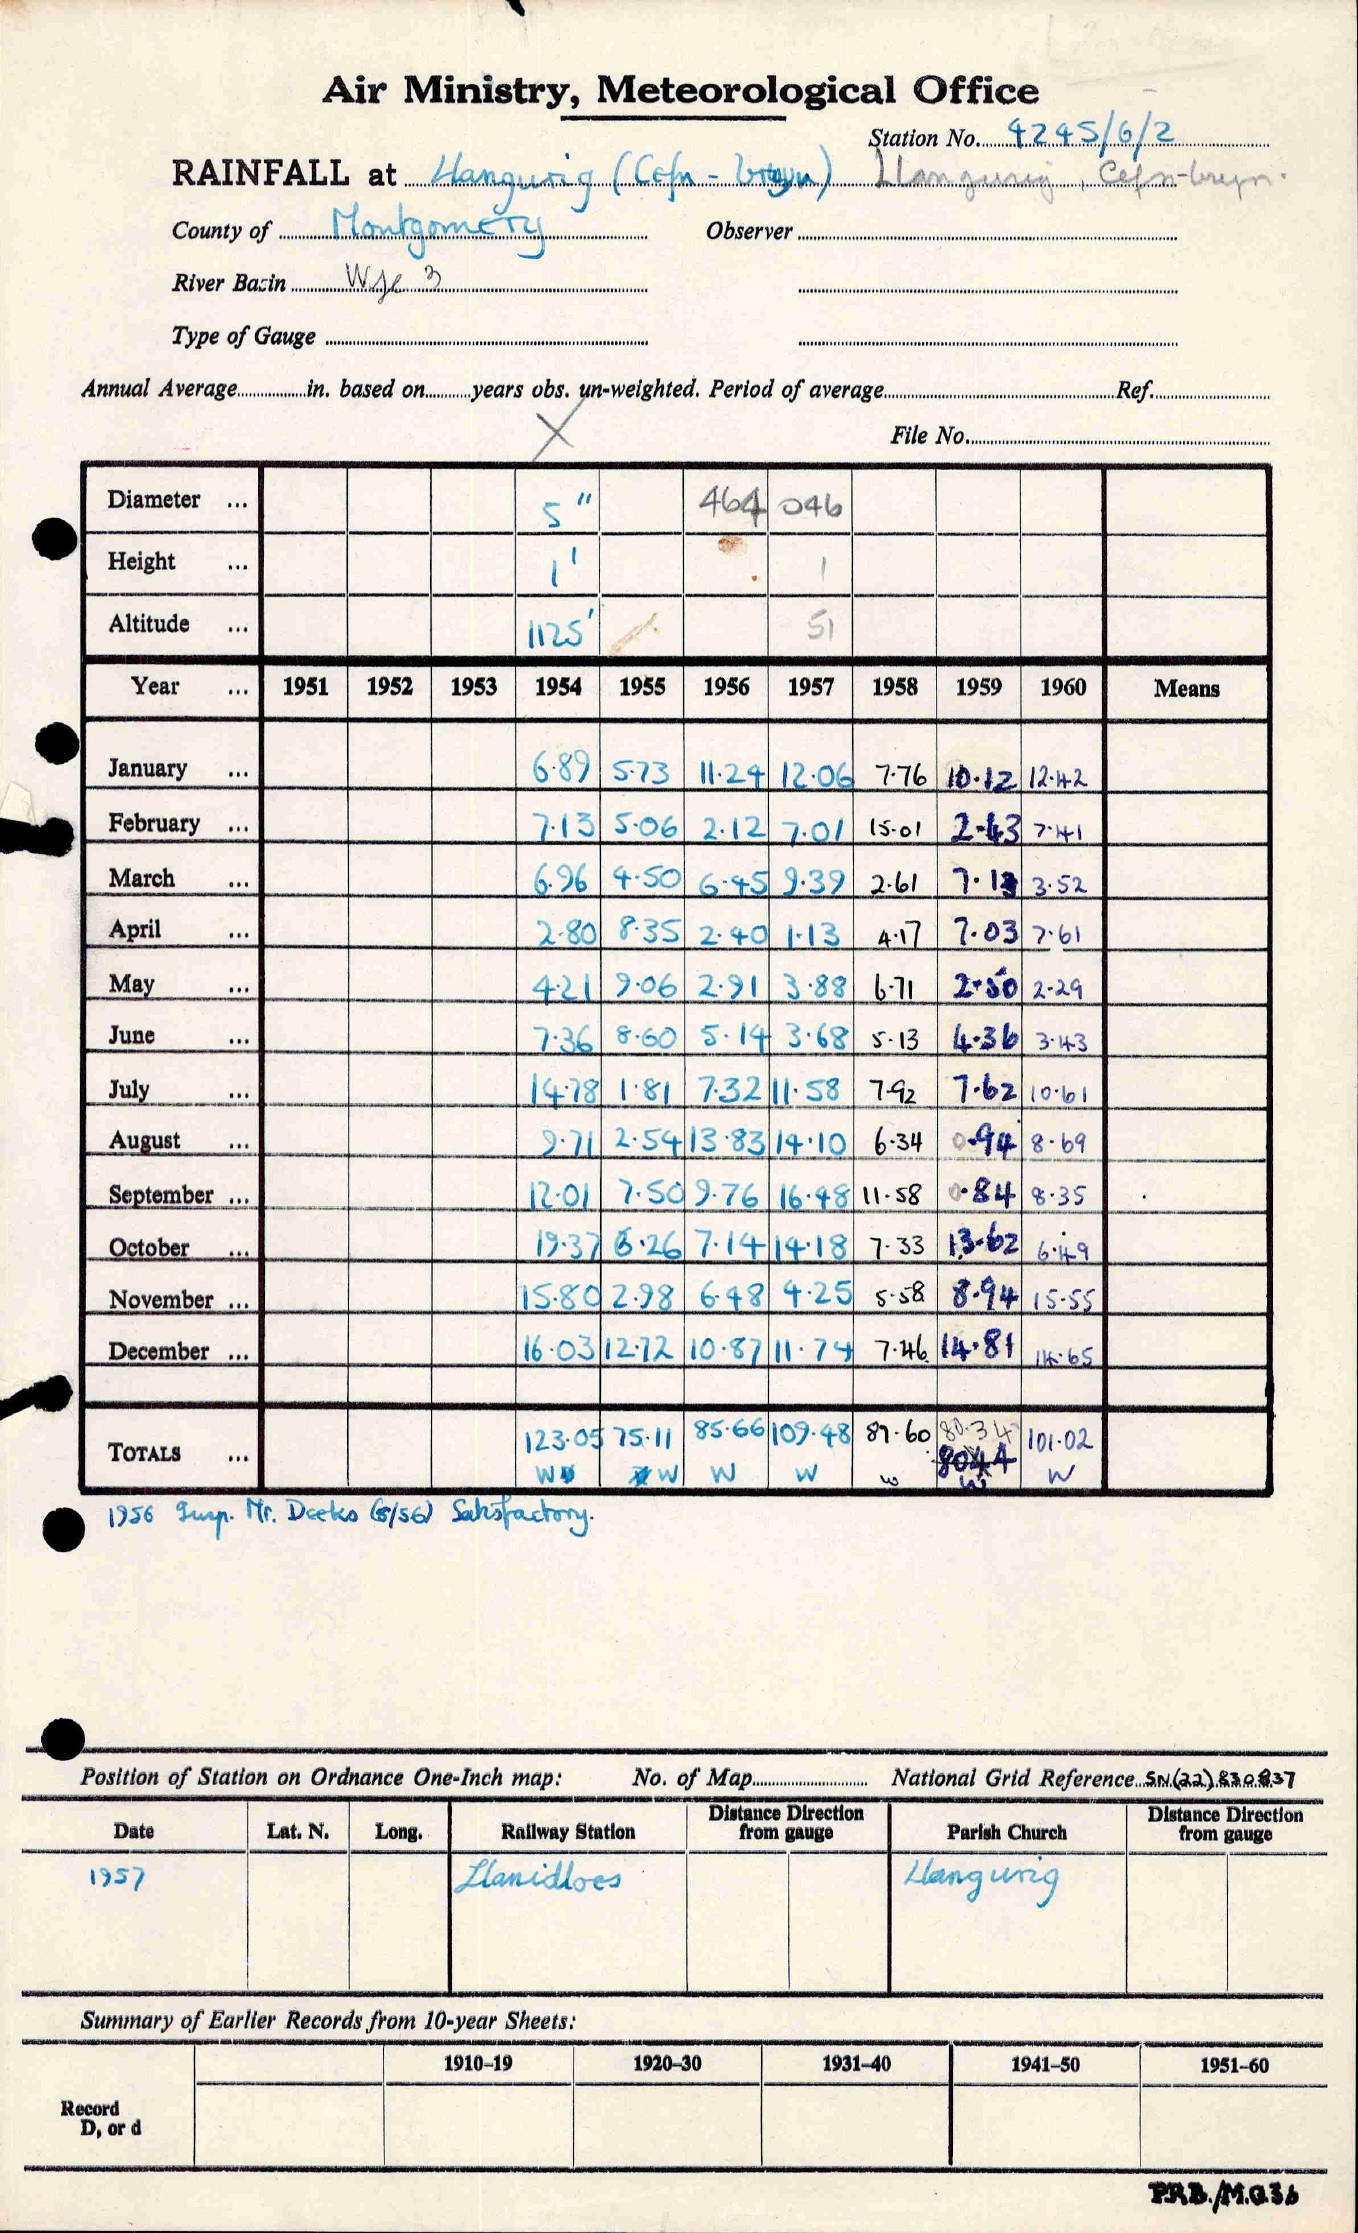 Air Ministry, Meteorological Office
Station No. 4245/6/2
RAINFALL at Llangurig (Cefn - bryn) Llangurig, Cefn-bryn.
County of Montgomery Observer
River Basin Wye 3
Type of Gauge
Annual Average in. based on years obs. un-weighted. Period of average Ref.
X
File No.
Diameter ... 5" 464 046
Height ... 1' 1
Altitude ... 1125' 51
Year ... 1951 1952 1953 1954 1955 1956 1957 1958 1959 1960 Means
January ... 6·89 5·73 11·24 12·06 7·76 10·12 12·42
February ... 7·13 5·06 2·12 7·01 15·01 2·43 7·41
March ... 6·96 4·50 6·45 9·39 2·61 7·13 3·52
April ... 2·80 8·35 2·40 1·13 4·17 7·03 7·61
May ... 4·21 9·06 2·91 3·88 6·71 2·50 2·29
June ... 7·36 8·60 5·14 3·68 5·13 4·36 3·43
July ... 14·78 1·81 7·32 11·58 7·92 7·62 10·61
August ... 9·71 2·54 13·83 14·10 6·34 0·94 8·69
September ... 12·01 7·50 9·76 16·48 11·58 0·84 8·35
October ... 19·37 6·26 7·14 14·18 7·33 13·62 6·49
November ... 15·80 2·98 6·48 4·25 5·58 8·94 15·55
December ... 16·03 12·72 10·87 11·74 7·46 14·81 14·65
TOTALS ... 123·05 75·11 85·66 109·48 87·60 80·34 101·02
80·44
W W W W W W W
1956 Insp. Mr. Deeks (8/56) Satisfactory.
Position of Station on Ordnance One-Inch map: No. of Map National Grid Reference SN(22)830837
Date Lat. N. Long. Railway Station Distance Direction from gauge Parish Church Distance Direction from gauge
1957 Llanidloes Llangurig
Summary of Earlier Records from 10-year Sheets:
1910–19 1920–30 1931–40 1941–50 1951–60
Record
D, or d
P.R.B./M.O.36